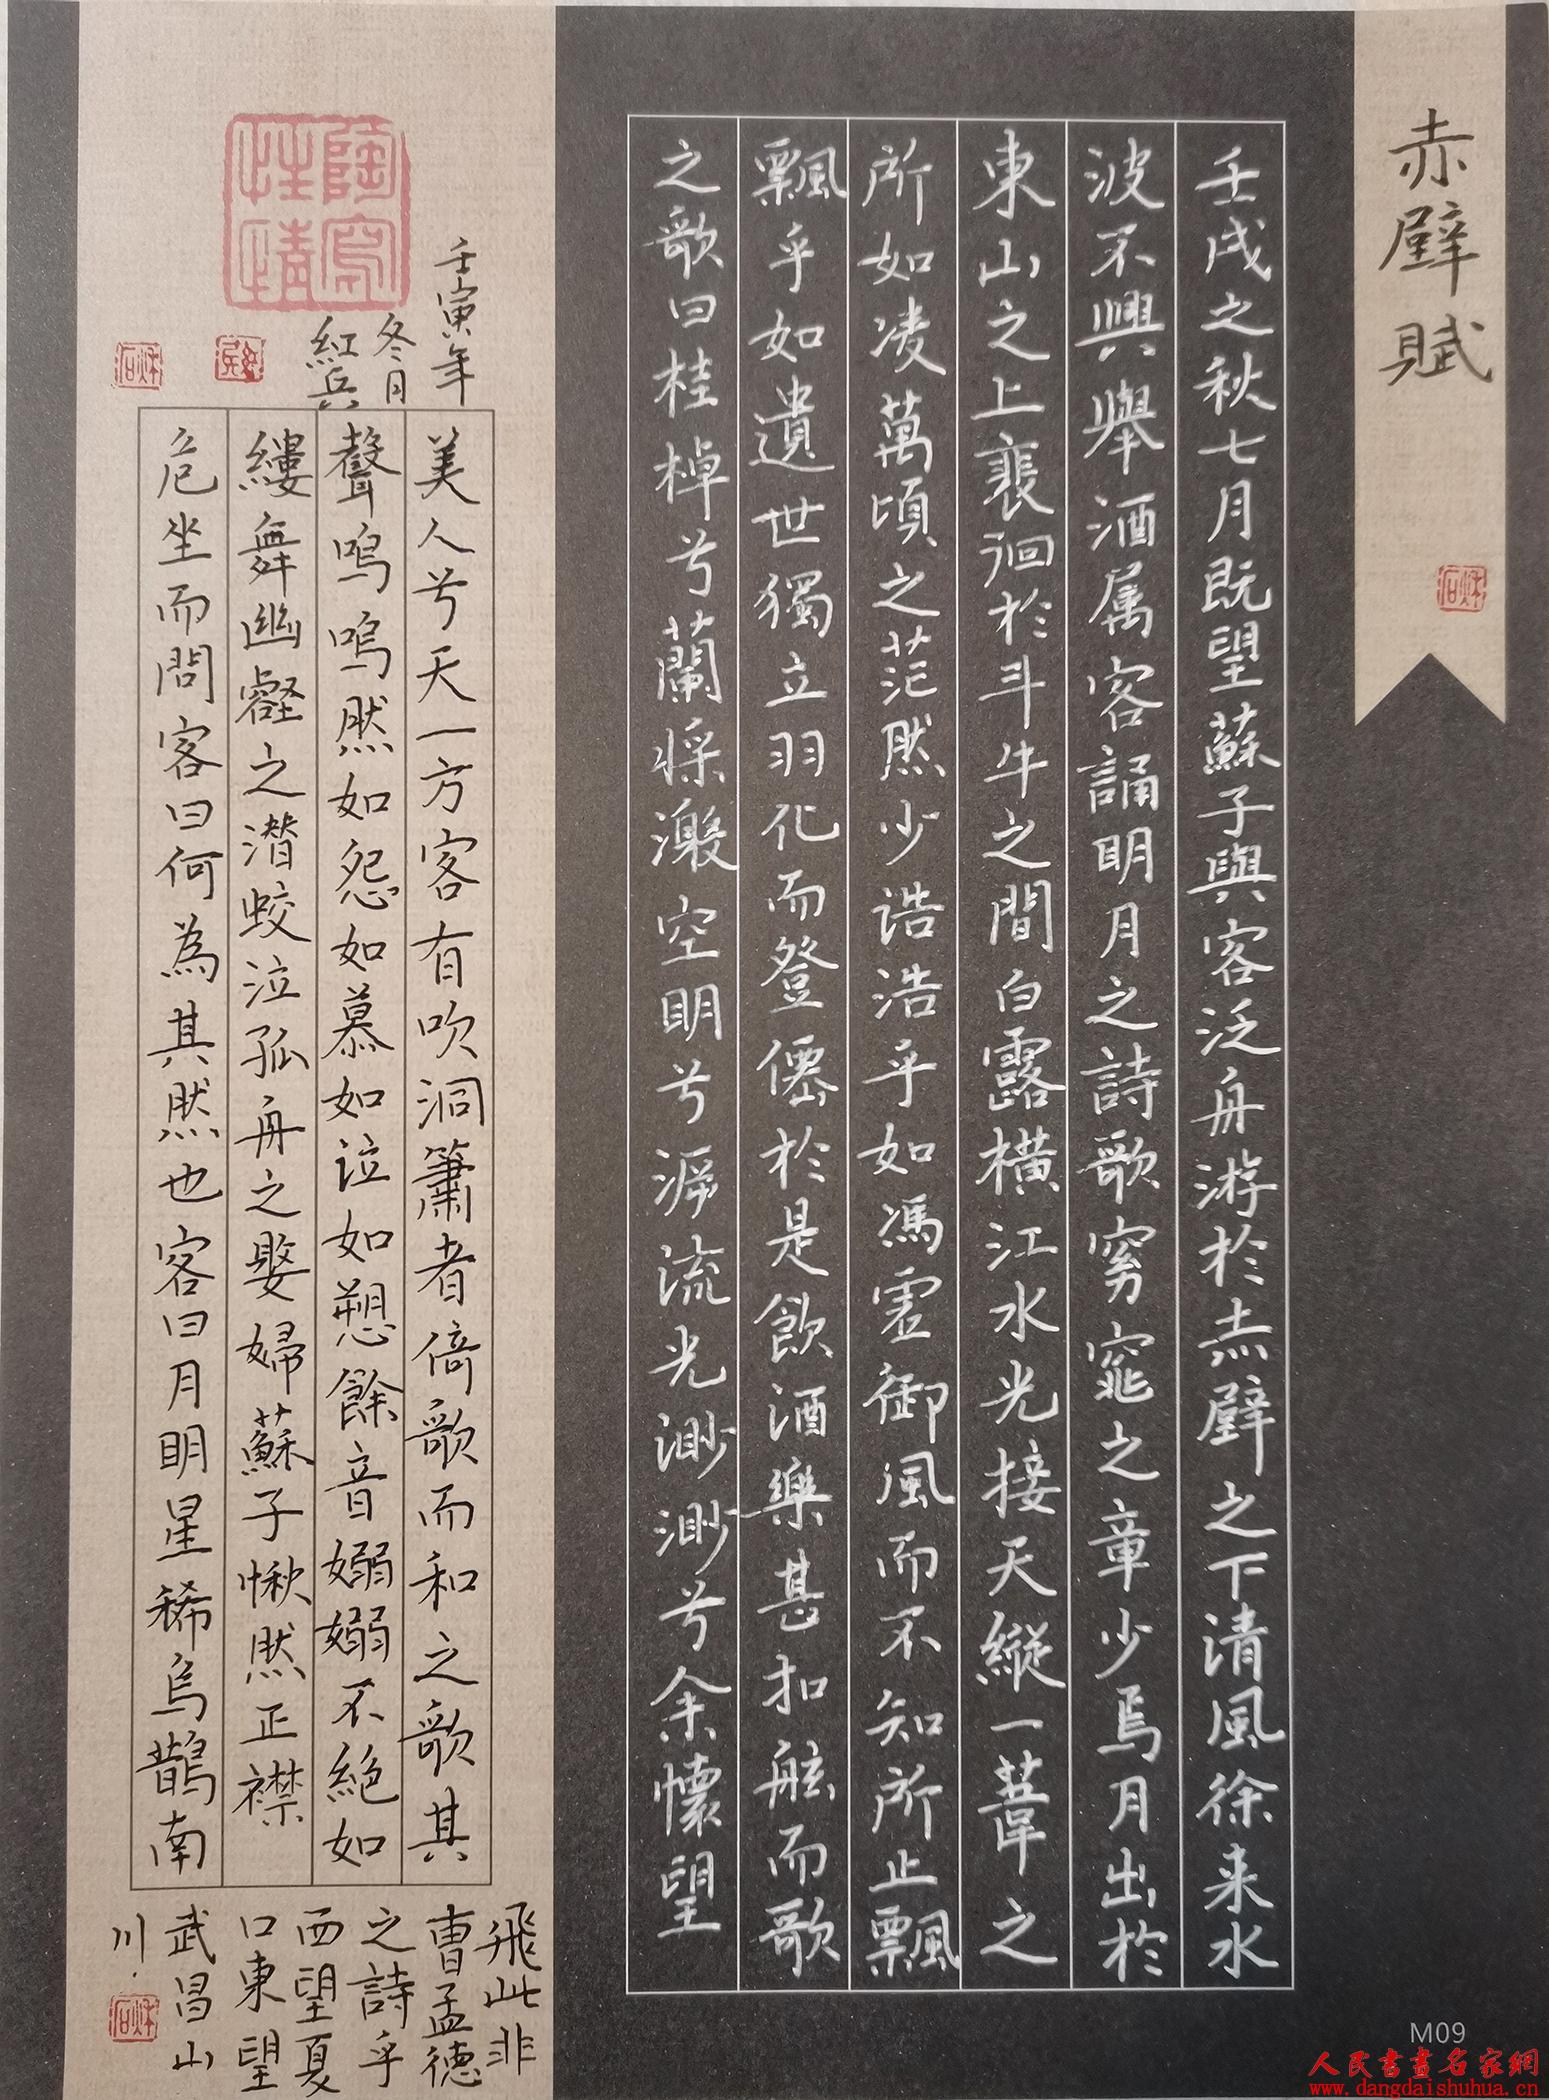 赤壁賦
壬戌之秋七月既望蘇子與客泛舟游於赤壁之下清風徐来水
波不興舉酒属客誦明月之詩歌窈窕之章少焉月出於
東山之上裵徊於斗牛之間白露橫江水光接天縱一葦之
所如凌萬頃之茫然少浩浩乎如馮虚御風而不知所止飄
飄乎如遺世獨立羽化而登僊於是飲酒樂甚扣舷而歌
之歌曰桂棹兮蘭槳激空明兮泝流光渺渺兮余懷望
美人兮天一方客有吹洞簫者倚歌而和之歌其
聲嗚嗚然如怨如慕如泣如愬餘音嫋嫋不絕如
縷舞幽壑之潜蛟泣孤舟之嫠婦蘇子愀然正襟
危坐而問客曰何為其然也客曰月明星稀烏鵲南
飛此非
曹孟德
之詩乎
西望夏
口東望
武昌山
川
壬寅年
冬月
紅兵
陶寫性情
M09
人民書畫名家網
www.dangdaishuhua.cn